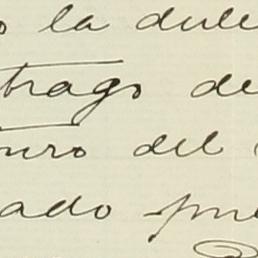 o la dulc
trago de
uro del
ado pu